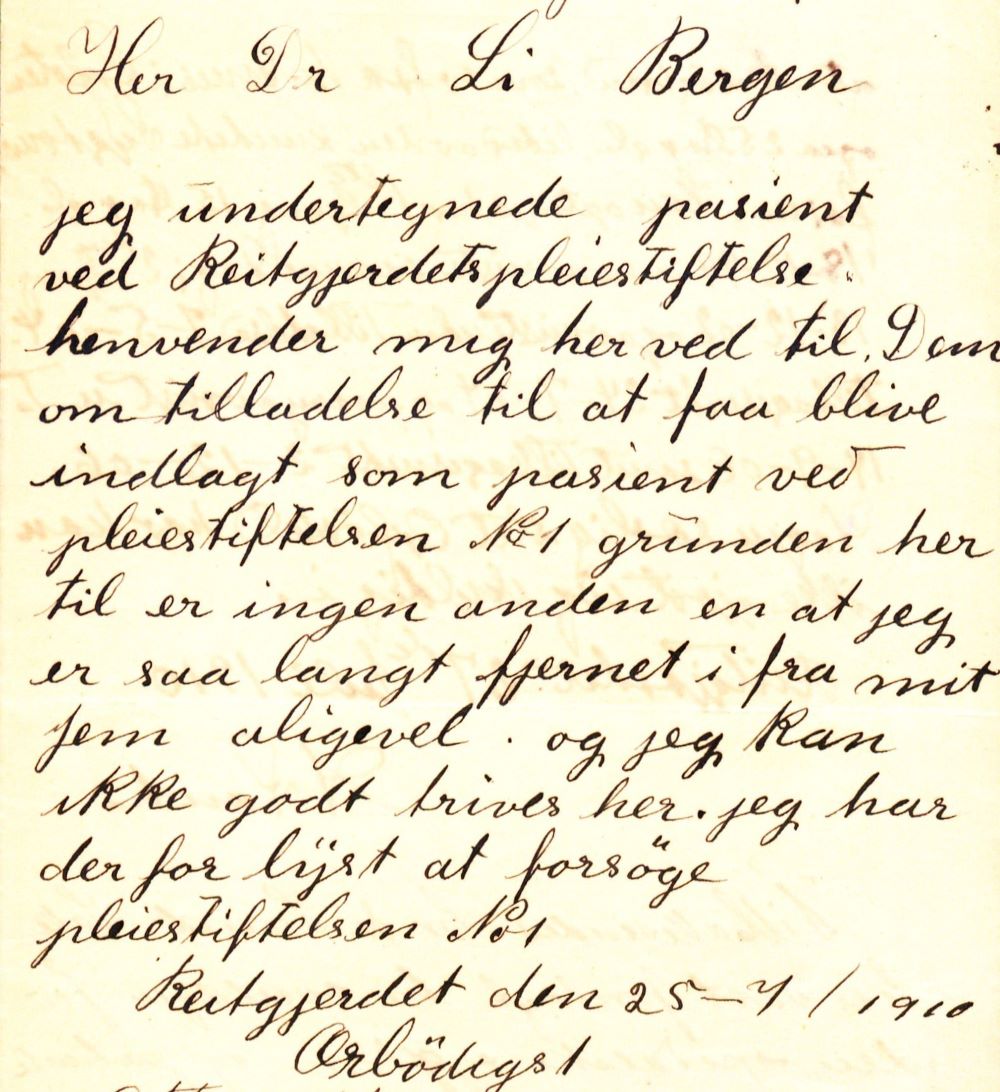 Her Dr Li Bergen
jeg undertegnede pasient
ved Reitgjerdetspleiestiftelse.
henvender mig her ved til. Dem
om tilladelse til at faa blive
indlagt som pasient ved
pleiestiftelsen No 1 grunden her
til er ingen anden en at jeg
er saa langt fjernet i fra mit
jem aligevel. og jeg kan
ikke godt trives her. jeg har
der for lÿst at forsöge
pleiestiftelsen No 1
Reitgjerdet den 25-7/1910
Ærbödigst